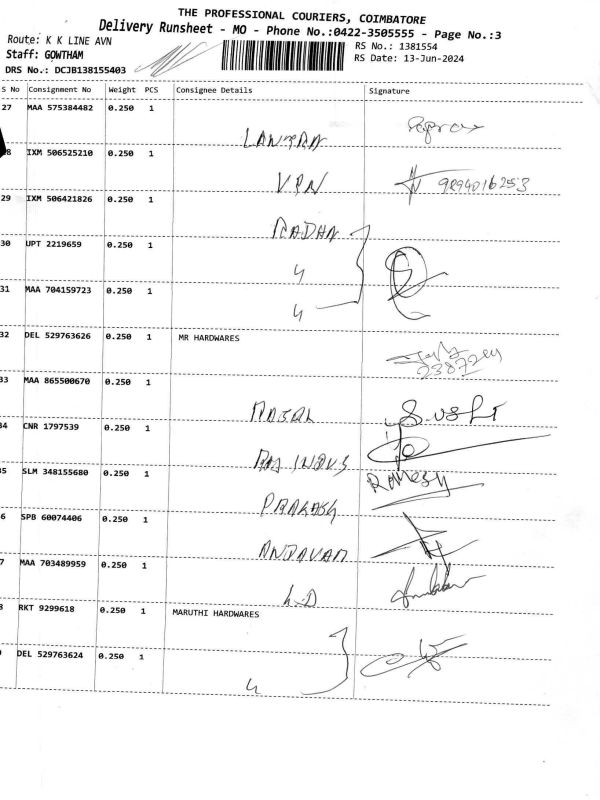 THE PROFESSIONAL COURIERS, COIMBATORE
Delivery Runsheet - MO - Phone No.:0422-3505555 - Page No.:3
Route: K K LINE AVN
RS No.: 1381554
Staff: GOWTHAM
RS Date: 13-Jun-2024
DRS No.: DCJB138155403
S No Consignment No Weight PCS Consignee Details Signature
27 MAA 575384482 0.250 1
8 IXM 506525210 0.250 1
VPN 9894016253
29 IXM 506421826 0.250 1
RADHA
30 UPT 2219659 0.250 1
31 MAA 704159723 0.250 1
32 DEL 529763626 0.250 1 MR HARDWARES
33 MAA 865500670 0.250 1
34 CNR 1797539 0.250 1
35 SLM 348155680 0.250 1
PRAKASH
6 SPB 60074406 0.250 1
ANDAVAR
7 MAA 703489959 0.250 1
L.D
8 RKT 9299618 0.250 1 MARUTHI HARDWARES
DEL 529763624 0.250 1